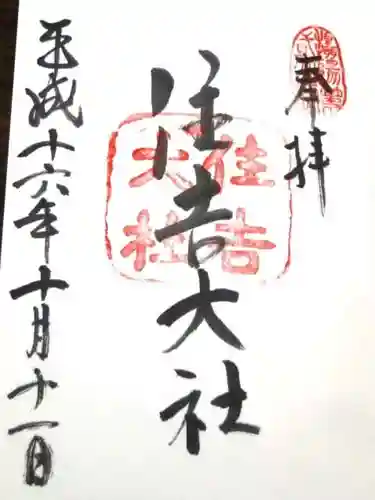 奉拝
住吉大社
住吉大社
平成十六年十月十一日